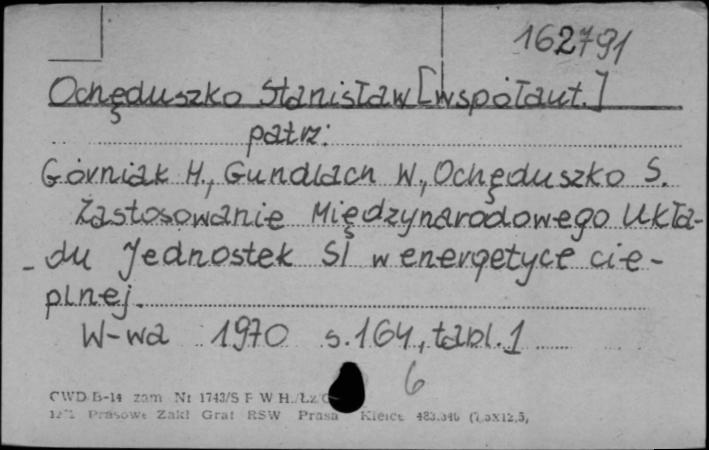 162791
Ochęduszko Stanisław [współaut.]
patrz:
Górniak H., Gundlach W., Ochęduszko S.
Zastosowanie Międzynarodowego Ukła-
-du Jednostek SI w energetyce cie-
plnej.
W-wa 1970 s. 164, tabl. 1
6
CWD B-14 zam Nr 1743/S F W H./Łz
Prasowe Zakł Graf RSW Prasa Kielce